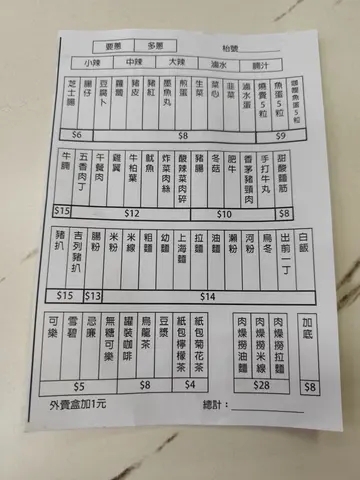 要蔥 多蔥 枱號
小辣 中辣 大辣 滷水 腩汁
芝士腸 腸仔 豆腐卜 蘿蔔 豬皮 豬紅 墨魚丸 煎蛋 生菜 菜心 韭菜 滷水蛋 燒賣5粒 魚蛋5粒 魚蛋5粒
$6 $8 $9
牛腩 五香肉丁 午餐肉 雞翼 牛柏葉 魷魚 炸菜肉絲 酸辣菜肉碎 豬腸 冬菇 肥牛 香茅豬頸肉 手打牛丸 甜酸麵筋
$15 $12 $10 $8
豬扒 吉列豬扒 腸粉 米粉 米線 粗麵 幼麵 上海麵 拉麵 油麵 瀨粉 河粉 烏冬 出前一丁 白飯
$15 $13 $14
可樂 雪碧 忌廉 無糖可樂 罐裝咖啡 烏龍茶 豆漿 紙包檸檬茶 紙包菊花茶 肉燥撈油麵 肉燥撈米線 肉燥撈拉麵 加底
$5 $8 $4 $28 $8
外賣盒加1元 總計：